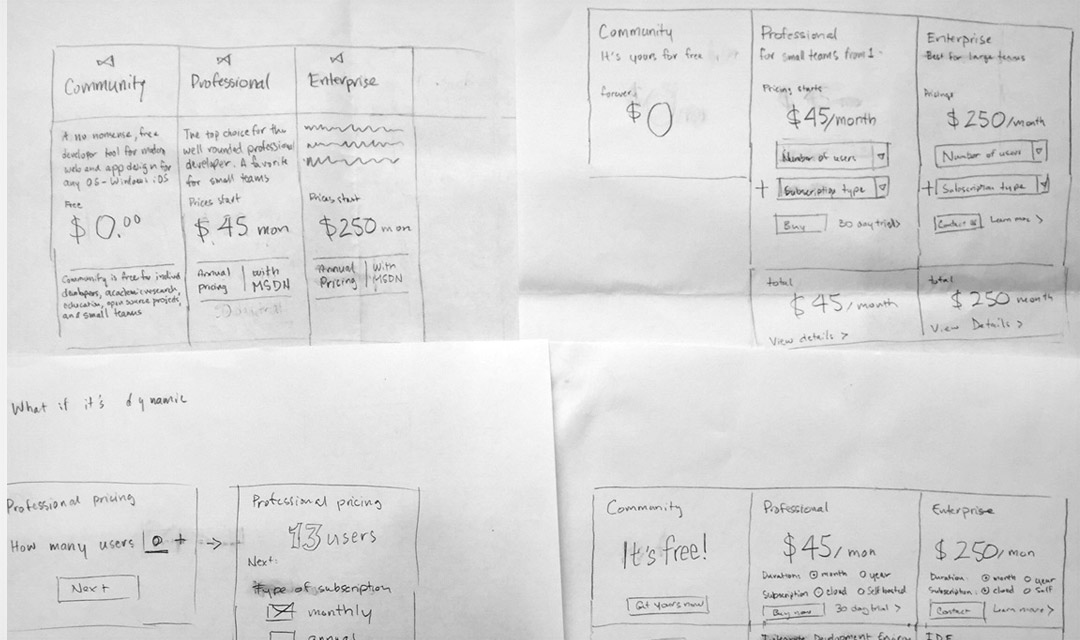 Community
Professional
Enterprise
A no nonsense, free
developer tool for
web and app design for
any OS - Windows iOS
Free
$0.00
Community is free for individ
developers, academic research,
education, open source projects,
and small teams
The top choice for the
well rounded professional
developer. A favorite
for small teams
Prices start
$45 mon
Annual pricing | with MSDN
Prices start
$250 mon
Annual Pricing | With MSDN
Community
It's yours for free
forever!
$0
Professional
for small teams from 1
Pricing starts
$45/month
Number of users
+ Subscription type
Buy 30 day trial>
total
$45/month
View details >
Enterprise
Best for large teams
Pricing
$250/month
Number of users
+ Subscription type
Contact Learn more >
total
$250 month
View Details >
What if it's dynamic
Professional pricing
How many users 0 +
Next
→
Professional pricing
13 users
Next:
type of subscription
monthly
annual
Community
It's free!
Get yours now
Professional
$45/mon
Duration: month year
Subscription cloud Self hosted
Buy now 30 day trial >
Integrate Development
Enterprise
$250/mon
Duration: month year
Subscription: cloud Self
Contact Learn more >
IDE